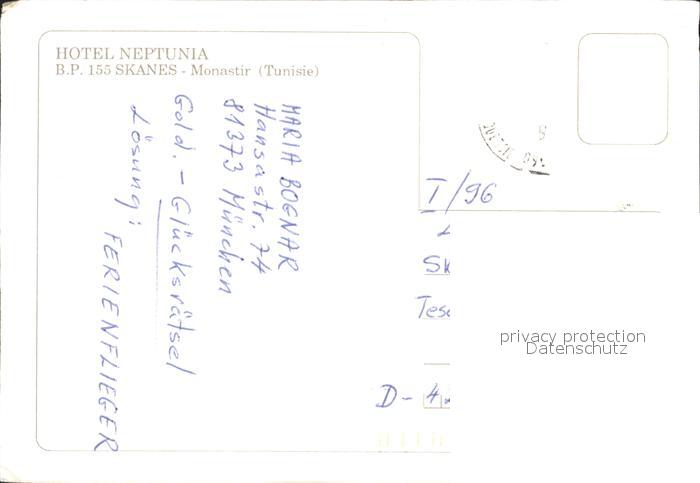 HOTEL NEPTUNIA
B.P. 155 SKANES - Monastir (Tunisie)
MARIA BOGNAR
Hansastr. 74
81373 München
Gold. - Glücksrätsel
Lösung:
FERIENFLIEGER
I/96
Sk
Tes
D- 4
privacy protection
Datenschutz